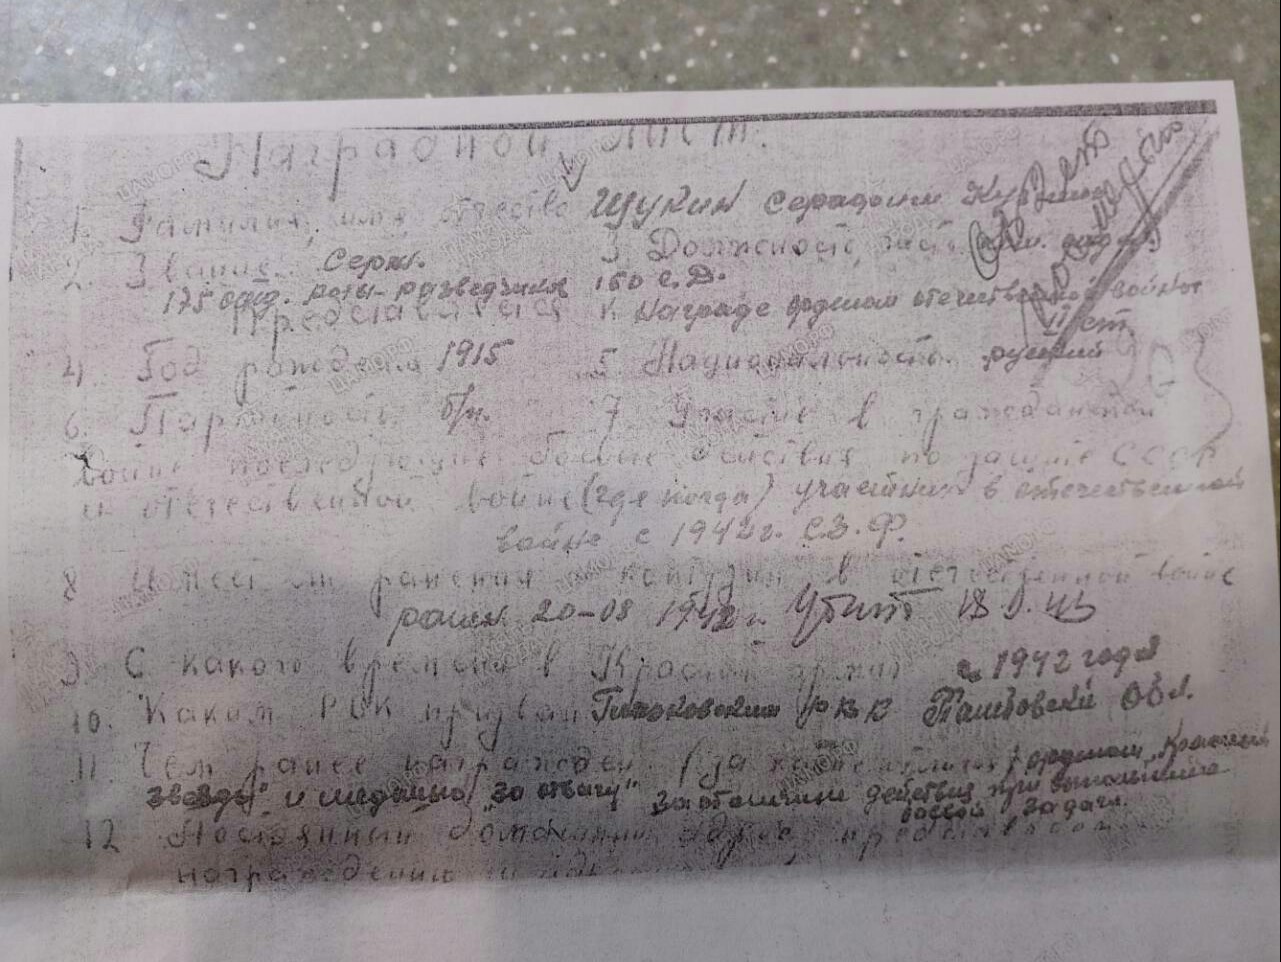 Наградной лист.
1. Фамилия, имя, отчество Щукин Серафим
2. Звание Серж. 3. Должность, часть
175 отд. роты-разведчик 150 с.д.
Представляется к награде орденом отечественной войны
II ст.
4. Год рождения 1915 5. Национальность русский
6. Партийность б/п. 7. Участие в гражданской
войне последующие боевые действия по защите СССР
и отечественной войне (где когда) участник в отечественной
войне с 1942 г. С.З.Ф.
8. Имеет ли ранения контузии в отечественной войне
ранен 20-08 1942 г. Убит 18
9. С какого времени в Красной армии с 1942 года
10. Каким РВК призван РВК обл.
11. Чем ранее награжден (за какие орденом „Красной
звезды" и медалью „За отвагу" за отличные действия при выполнении
боевой задачи.
12 Постоянный домашний адрес представляемого
награждению и адрес